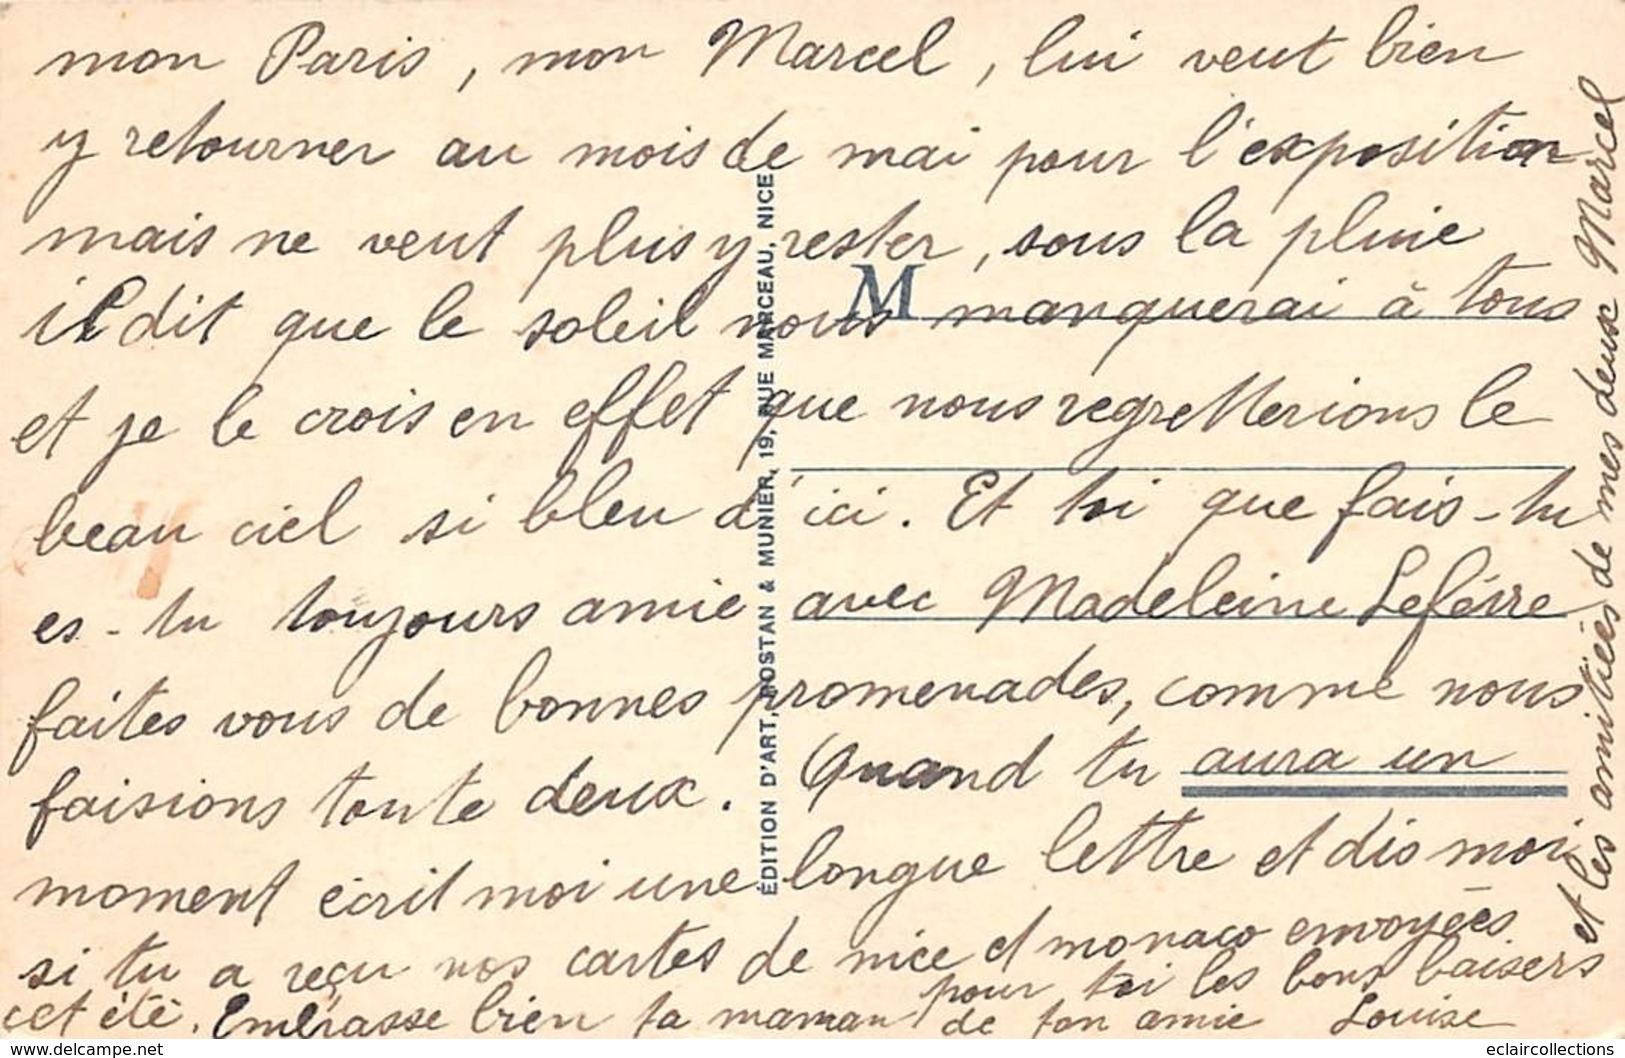 mon Paris, mon Marcel, lui veut bien
y retourner au mois de mai pour l'exposition
mais ne veut plus y rester, sous la pluie
il dit que le soleil nous manquerai à tous
et je le crois en effet que nous regretterions le
beau ciel si bleu d'ici. Et toi que fais-tu
es-tu toujours amie avec Madeleine Lefévre
faites vous de bonnes promenades, comme nous
faisions toute deux. Quand tu aura un
moment écrit moi une longue lettre et dis moi
si tu a reçu nos cartes de nice et monaco envoyées
cet été. Embrasse bien ta maman pour toi les bons baisers
de ton amie Louise
et les amitiées de mes deux Marcel
M
ÉDITION D'ART, ROSTAN & MUNIER, 19, RUE MARCEAU, NICE
eclaircollections
www.delcampe.net